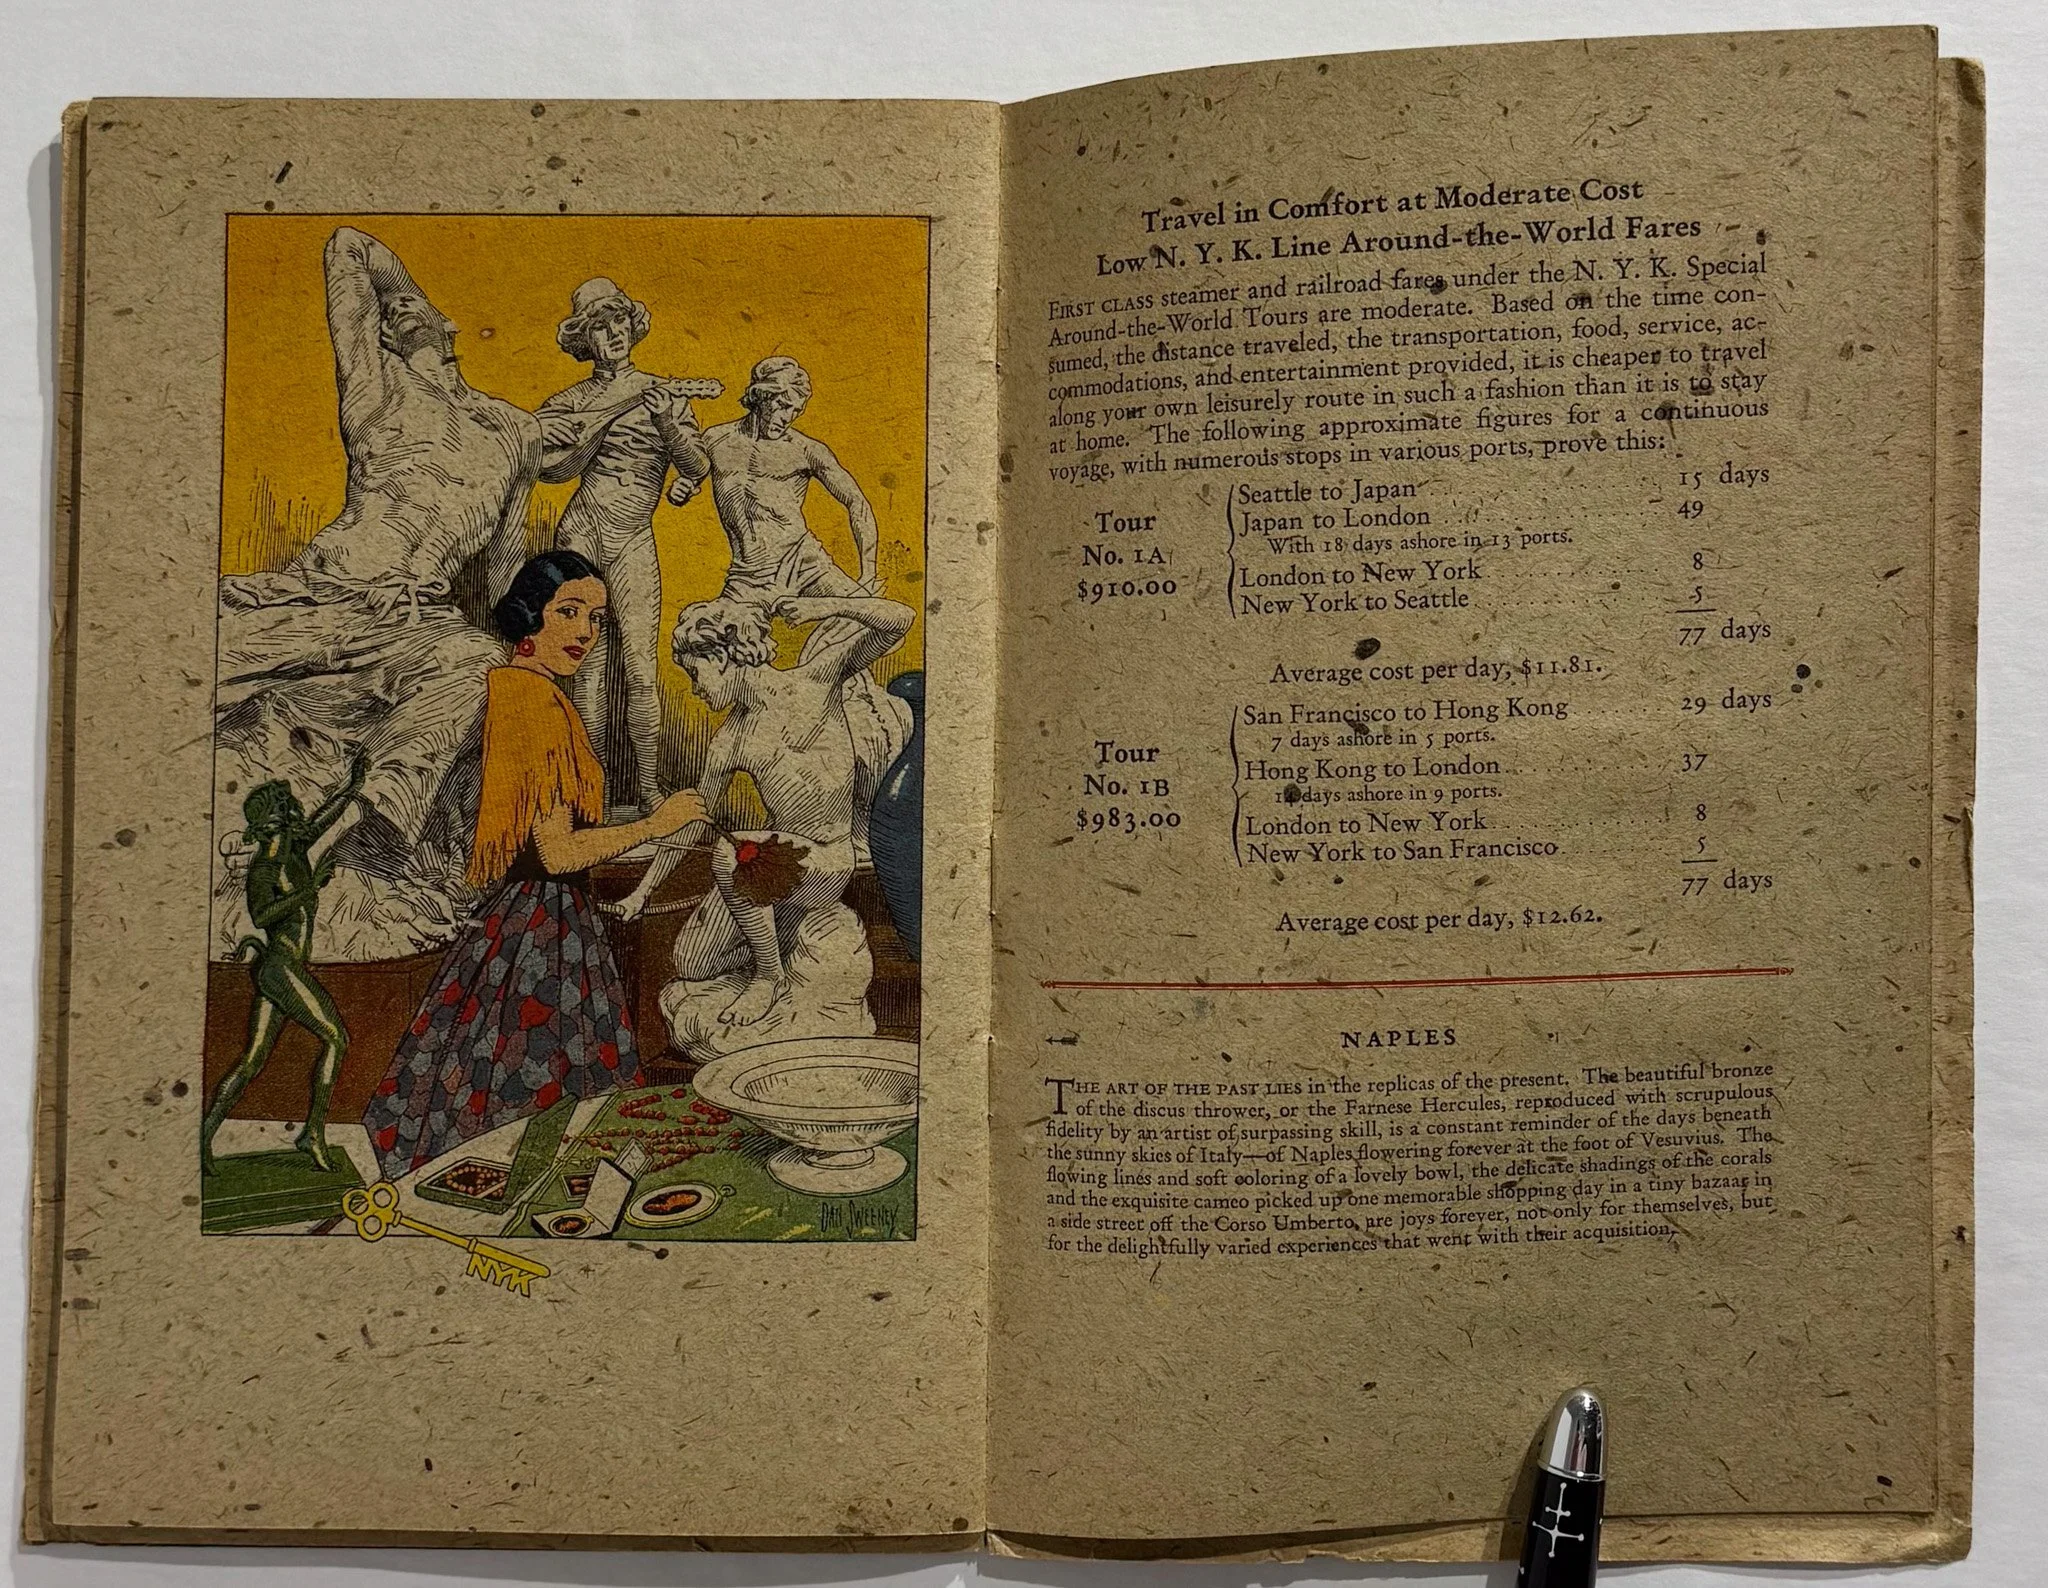 DAN SWEENEY
NYK
Travel in Comfort at Moderate Cost
Low N. Y. K. Line Around-the-World Fares
FIRST CLASS steamer and railroad fares under the N. Y. K. Special
Around-the-World Tours are moderate. Based on the time con-
sumed, the distance traveled, the transportation, food, service, ac-
commodations, and entertainment provided, it is cheaper to travel
along your own leisurely route in such a fashion than it is to stay
at home. The following approximate figures for a continuous
voyage, with numerous stops in various ports, prove this:
Tour
No. 1A
$910.00
Seattle to Japan . . . . . . . . . . . . 15 days
Japan to London . . . . . . . . . . . . 49
With 18 days ashore in 13 ports.
London to New York . . . . . . . . . . 8
New York to Seattle . . . . . . . . . . 5
77 days
Average cost per day, $11.81.
Tour
No. 1B
$983.00
San Francisco to Hong Kong . . . . . . 29 days
7 days ashore in 5 ports.
Hong Kong to London . . . . . . . . . . 37
14 days ashore in 9 ports.
London to New York . . . . . . . . . . 8
New York to San Francisco . . . . . . . 5
77 days
Average cost per day, $12.62.
NAPLES
THE ART OF THE PAST LIES in the replicas of the present. The beautiful bronze
of the discus thrower, or the Farnese Hercules, reproduced with scrupulous
fidelity by an artist of surpassing skill, is a constant reminder of the days beneath
the sunny skies of Italy—of Naples flowering forever at the foot of Vesuvius. The
flowing lines and soft coloring of a lovely bowl, the delicate shadings of the corals
and the exquisite cameo picked up one memorable shopping day in a tiny bazaar in
a side street off the Corso Umberto, are joys forever, not only for themselves, but
for the delightfully varied experiences that went with their acquisition.